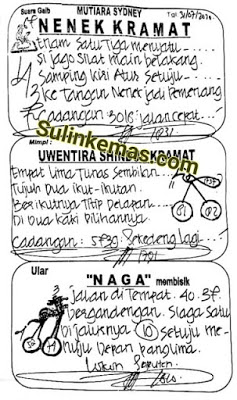 Suara Gaib MUTIARA SYDNEY Tgl 31/07/2024
NENEK KRAMAT
Enam Satu Tiga menyatu
Si jago silat main belakang.
Samping kiri Atas Setuju
Ke tangan Nenek jadi Pemenang
Cadangan 3016 jalan cepat
Sulinkemas.com
Mimpi:
UWENTIRA SHIN KRAMAT
Empat Lima Tunas Sembilan
Tujuh Dua ikut-ikutan.
Berikutnya Titip Delapan
Di Dua kaki Pilihannya.
Cadangan: 5739. Sekedeng lagi
Ular
"NAGA" membisik
jalan di Tempat. 40.37.
bergandengan. Siaga Satu
di jalurnya (10) Setuju me-
nuju Depan Panglima.